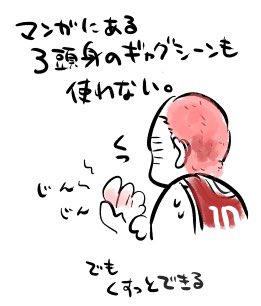 マンガにある
3頭身のギャグシーンも
使わない。
くっ
じん
じん
10
でも
くすっとできる